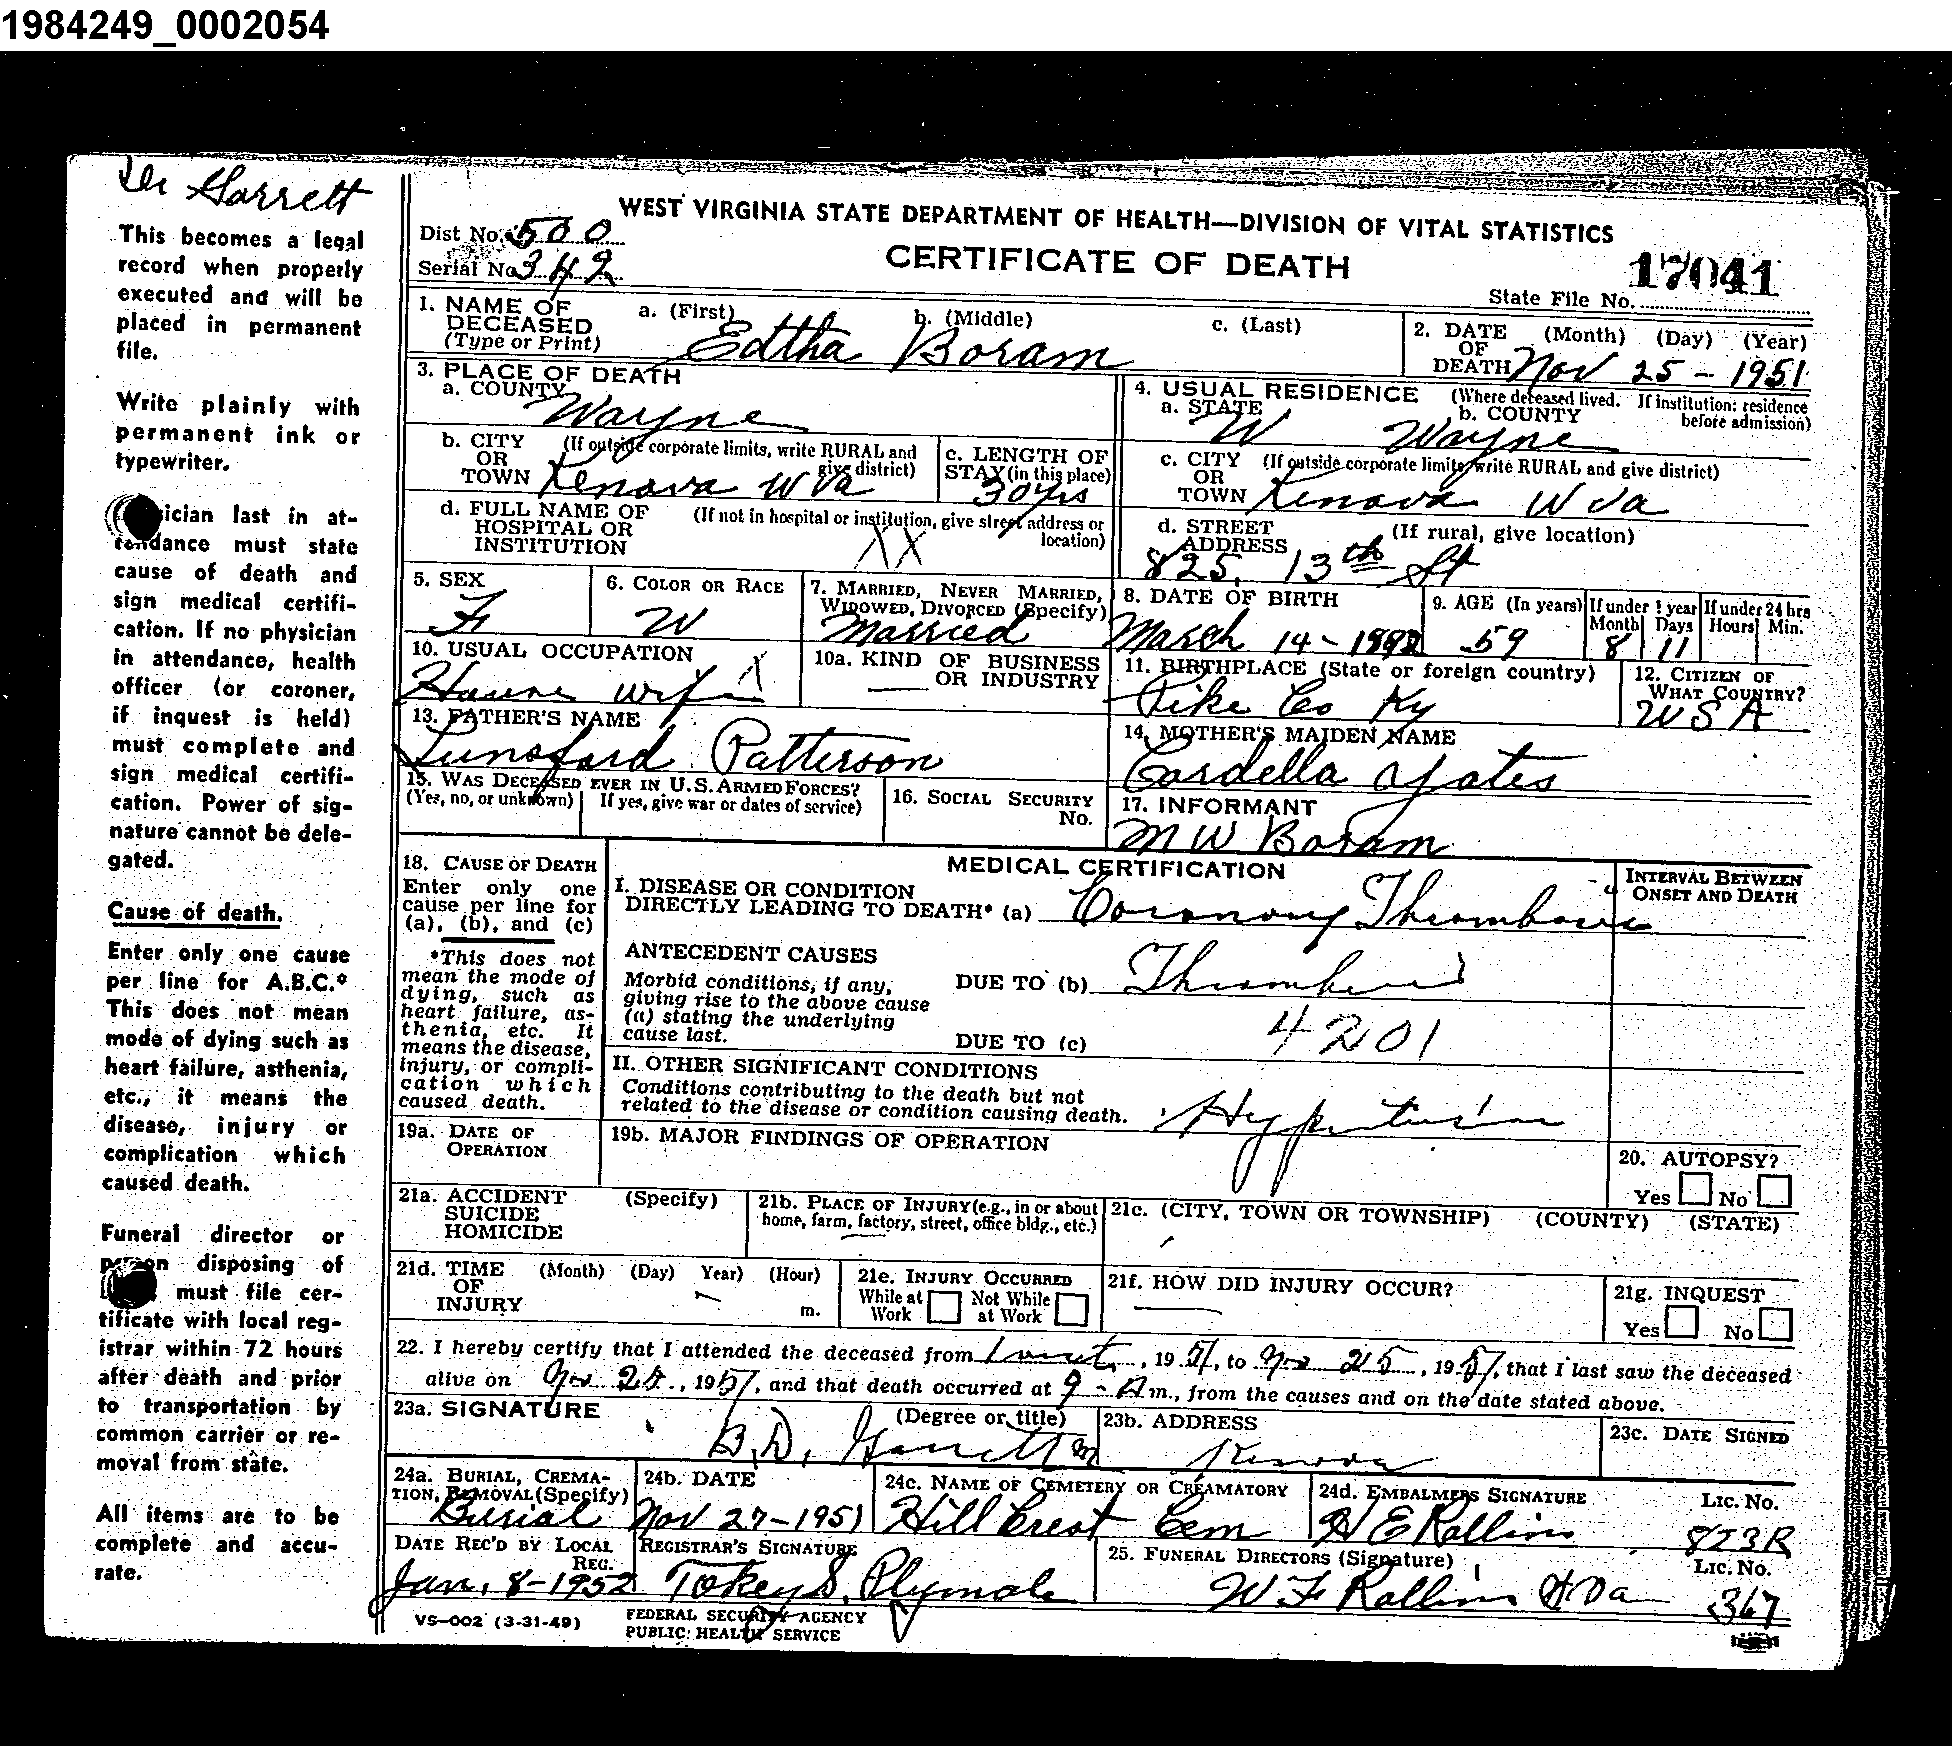 1984249_0002054
Dr Garrett
This becomes a legal
record when properly
executed and will be
placed in permanent
file.
Write plainly with
permanent ink or
typewriter.
ician last in at-
tendance must state
cause of death and
sign medical certifi-
cation. If no physician
in attendance, health
officer (or coroner,
if inquest is held)
must complete and
sign medical certifi-
cation. Power of sig-
nature cannot be dele-
gated.
Cause of death.
Enter only one cause
per line for A.B.C.*
This does not mean
mode of dying such as
heart failure, asthenia,
etc., it means the
disease, injury or
complication which
caused death.
Funeral director or
person disposing of
must file cer-
tificate with local reg-
istrar within 72 hours
after death and prior
to transportation by
common carrier or re-
moval from state.
All items are to be
complete and accu-
rate.
WEST VIRGINIA STATE DEPARTMENT OF HEALTH—DIVISION OF VITAL STATISTICS
Dist No. 500
CERTIFICATE OF DEATH
Serial No 342
17041
State File No.
1. NAME OF DECEASED (Type or Print) a. (First) b. (Middle) c. (Last)
Edtha Boram
2. DATE OF DEATH (Month) (Day) (Year)
Nov 25 - 1951
3. PLACE OF DEATH
a. COUNTY
Wayne
4. USUAL RESIDENCE (Where deceased lived. If institution: residence before admission)
a. STATE b. COUNTY
W Wayne
b. CITY OR TOWN (If outside corporate limits, write RURAL and give district)
Kenova W Va
c. LENGTH OF STAY (in this place)
30 yrs
c. CITY OR TOWN (If outside corporate limits, write RURAL and give district)
Kenova W Va
d. FULL NAME OF HOSPITAL OR INSTITUTION (If not in hospital or institution, give street address or location)
XX
d. STREET ADDRESS (If rural, give location)
825, 13th St
5. SEX
F
6. COLOR OR RACE
W
7. MARRIED, NEVER MARRIED, WIDOWED, DIVORCED (Specify)
Married
8. DATE OF BIRTH
March 14 - 1892
9. AGE (In years)
59
If under 1 year Month Days
8 11
If under 24 hrs Hours Min.
10. USUAL OCCUPATION
House wife X
10a. KIND OF BUSINESS OR INDUSTRY
11. BIRTHPLACE (State or foreign country)
Pike Co Ky
12. CITIZEN OF WHAT COUNTRY?
USA
13. FATHER'S NAME
Lunsford Patterson
14. MOTHER'S MAIDEN NAME
Cordella Yates
15. WAS DECEASED EVER IN U.S. ARMED FORCES?
(Yes, no, or unknown) If yes, give war or dates of service)
16. SOCIAL SECURITY No.
17. INFORMANT
M W Boram
18. CAUSE OF DEATH
Enter only one
cause per line for
(a), (b), and (c)
*This does not
mean the mode of
dying, such as
heart failure, as-
thenia, etc. It
means the disease,
injury, or compli-
cation which
caused death.
MEDICAL CERTIFICATION
INTERVAL BETWEEN ONSET AND DEATH
I. DISEASE OR CONDITION
DIRECTLY LEADING TO DEATH* (a) Coronary Thrombosis
ANTECEDENT CAUSES
Morbid conditions, if any,
giving rise to the above cause
(a) stating the underlying
cause last.
DUE TO (b)
DUE TO (c) 4201
II. OTHER SIGNIFICANT CONDITIONS
Conditions contributing to the death but not
related to the disease or condition causing death. Hypertension
19a. DATE OF OPERATION
19b. MAJOR FINDINGS OF OPERATION
20. AUTOPSY?
Yes No
21a. ACCIDENT SUICIDE HOMICIDE (Specify)
21b. PLACE OF INJURY (e.g., in or about home, farm, factory, street, office bldg., etc.)
21c. (CITY, TOWN OR TOWNSHIP) (COUNTY) (STATE)
21d. TIME OF INJURY (Month) (Day) Year) (Hour) m.
21e. INJURY OCCURRED
While at Work Not While at Work
21f. HOW DID INJURY OCCUR?
21g. INQUEST
Yes No
22. I hereby certify that I attended the deceased from , 1951, to Nov 25, 1951, that I last saw the deceased
alive on Nov 25, 1951, and that death occurred at 9 - A m., from the causes and on the date stated above.
23a. SIGNATURE (Degree or title)
B.D. Garrett M
23b. ADDRESS
Kenova
23c. DATE SIGNED
24a. BURIAL, CREMA-
TION, REMOVAL (Specify)
Burial
24b. DATE
Nov 27-1951
24c. NAME OF CEMETERY OR CREAMATORY
Hill Crest Cem
24d. EMBALMERS SIGNATURE LIC. NO.
H E Rollins 823R
DATE REC'D BY LOCAL REG.
Jan. 8-1952
REGISTRAR'S SIGNATURE
Tokey S. Plymale
25. FUNERAL DIRECTORS (Signature) LIC. NO.
W F Rollins 367
VS-002 (3-31-49)
FEDERAL SECURITY AGENCY
PUBLIC HEALTH SERVICE